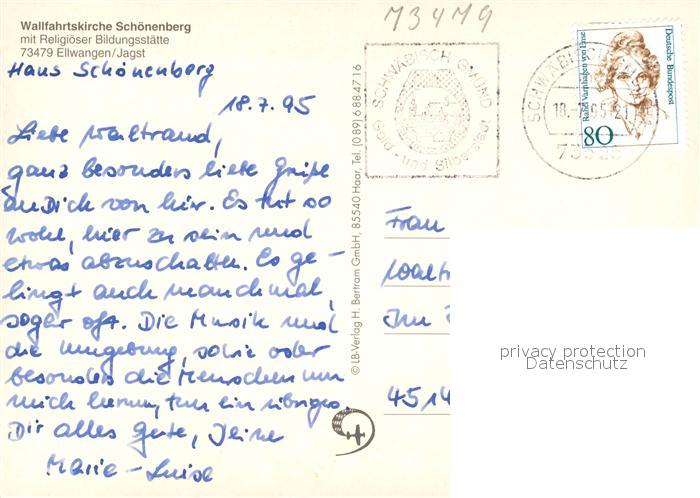 73479
Wallfahrtskirche Schönenberg
mit Religiöser Bildungsstätte
73479 Ellwangen/Jagst
Haus Schönenberg
18.7.95
Liebe Waltraud,
ganz besonders liebe Grüße
an Dich von hier. Es tut so
wohl, hier zu sein und
etwas abzuschalten. Es ge-
lingt auch manchmal,
sogar oft. Die Musik und
die Umgebung, sowie oder
besonders die Menschen um
mich herum, tun ein übriges.
Dir alles Gute, Deine
Marie-Luise
© LB-Verlag H. Bertram GmbH, 85540 Haar, Tel. (089) 6884716
SCHWÄBISCH GMÜND
Gold- und Silberstadt
SCHWÄBISCH
18.-7.95-21
Rahel Varnhagen von Ense
Deutsche Bundespost
80
Frau
Waltr
Im
4514
privacy protection
Datenschutz